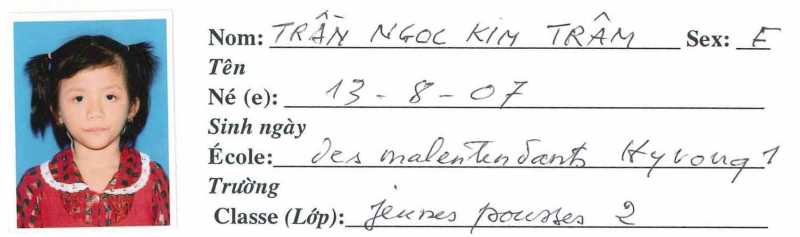 Nom: TRẦN NGOC KIM TRÂM Sex: F
Tên
Né (e): 13 - 8 - 07
Sinh ngày
École: des malentendants Hy vong 1
Trường
Classe (Lớp): jeunes pousses 2